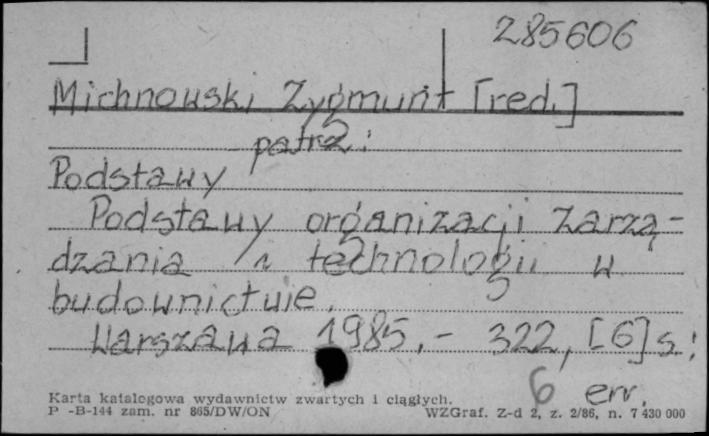 285606
Michnowski Zygmunt [red.]
patrz:
Podstawy
Podstawy organizacji zarzą-
dzania i technologii w
budownictwie.
Warszawa 1985. - 322, [6] s.:
6 err.
Karta katalogowa wydawnictw zwartych i ciągłych.
P -B-144 zam. nr 865/DW/ON WZGraf. Z-d 2, z. 2/86, n. 7 430 000